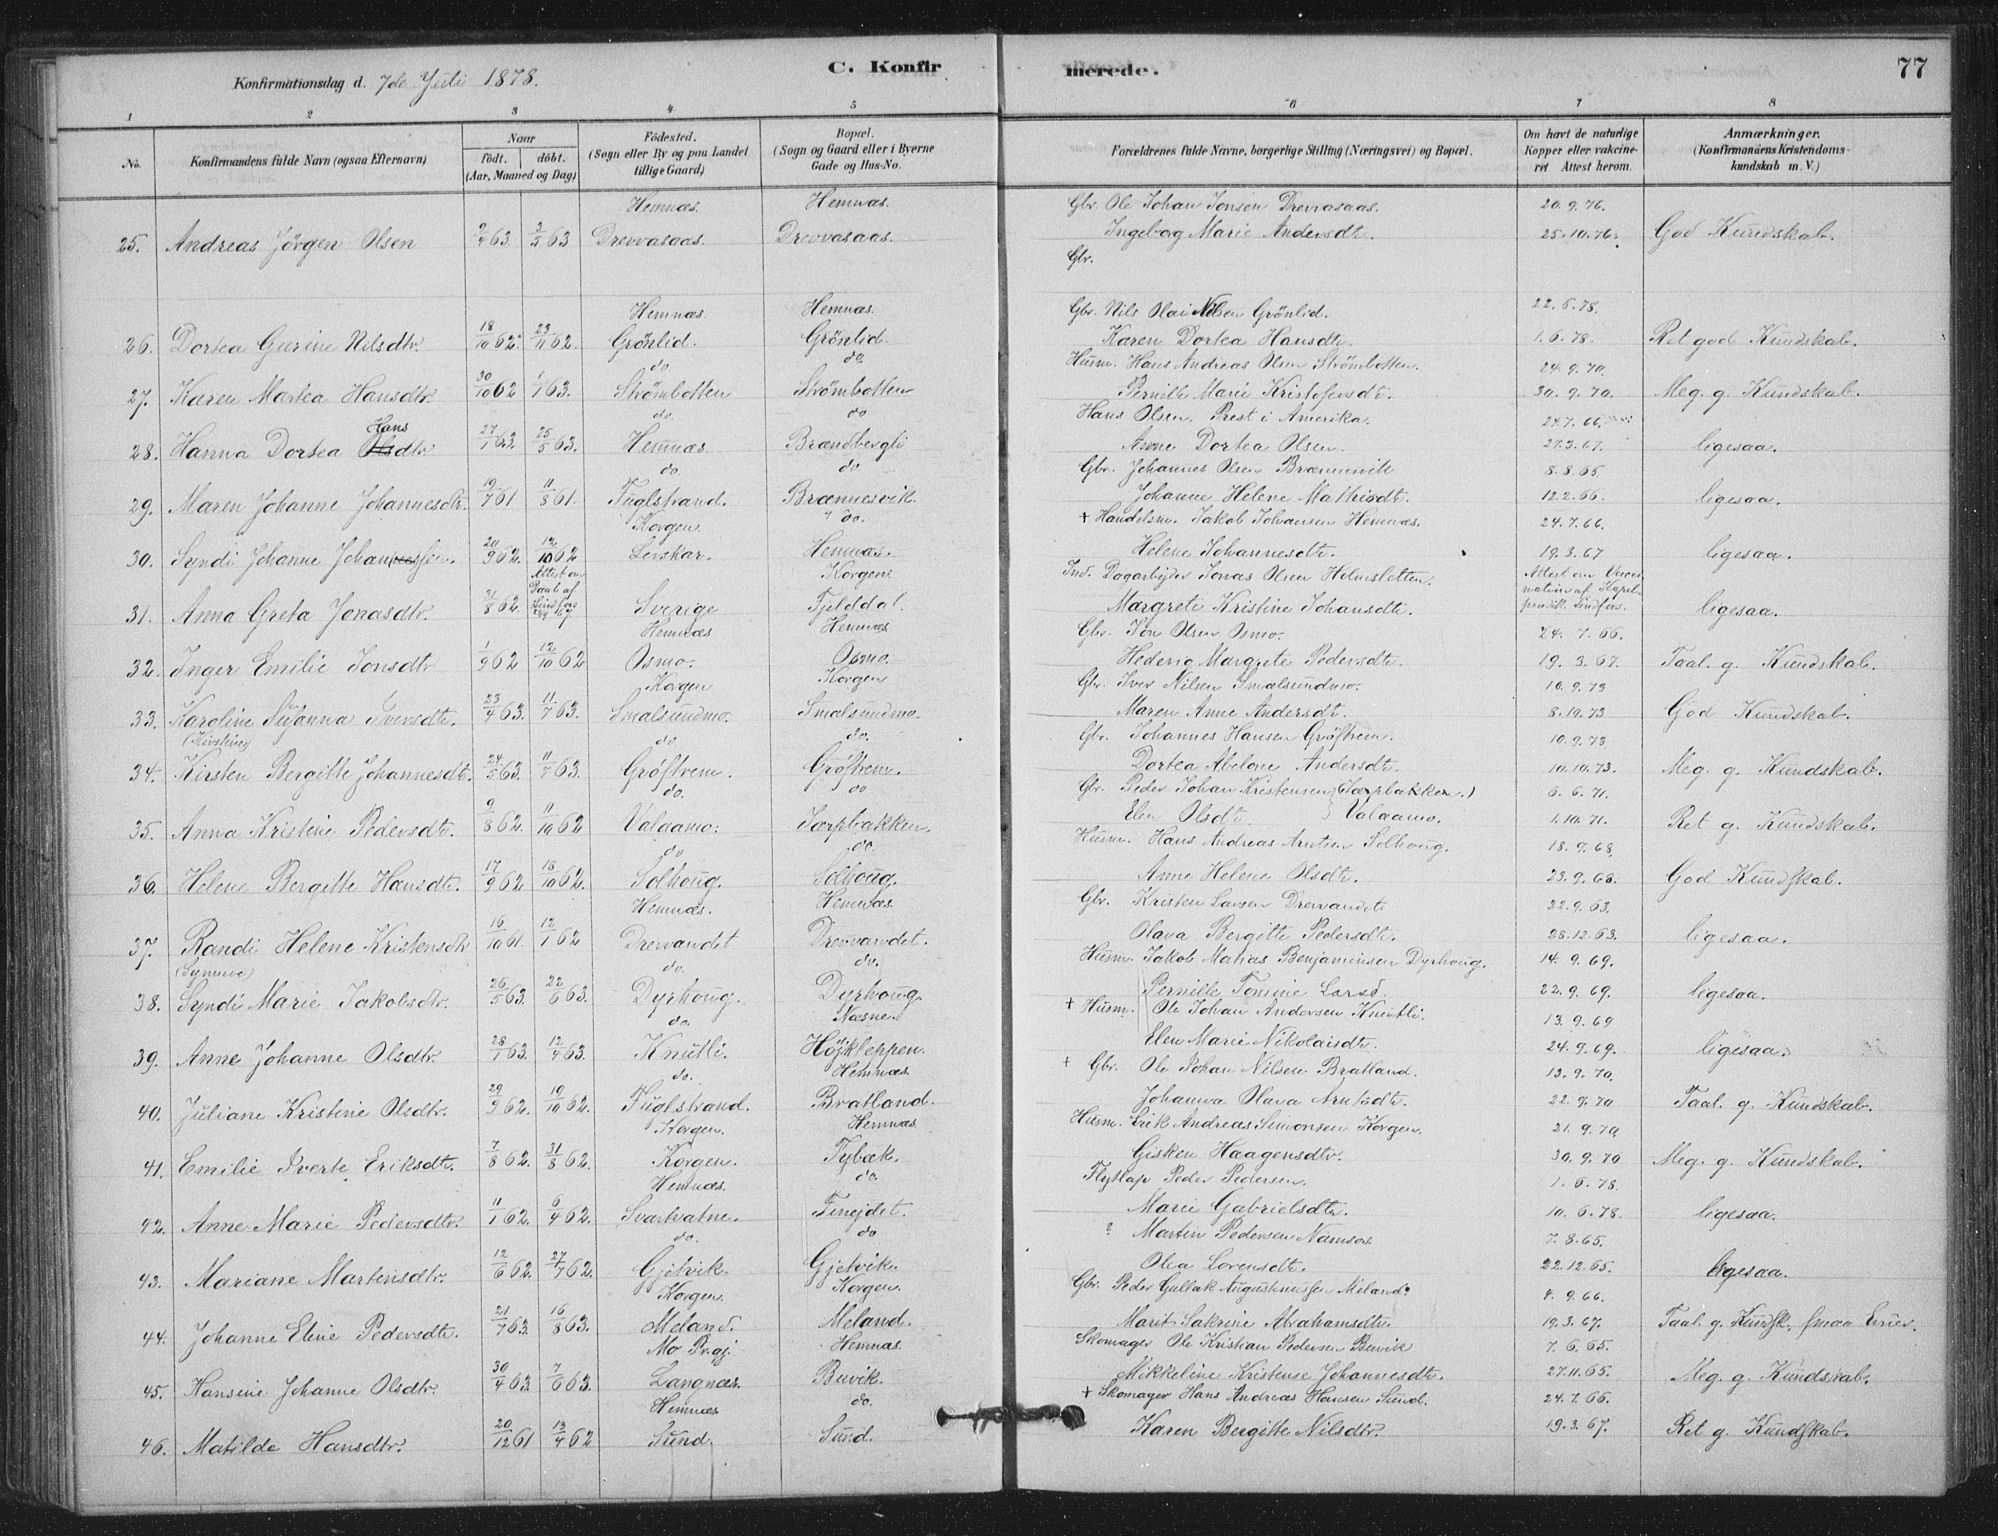 Konfirmationsdag d. 7de Juli 1878. C. Konfirmerede. 77
1 2 3 4 5 6 7 8
No. Konfirmandens fulde Navn (ogsaa Efternavn) Naar födt. döbt. (Aar, Maaned og Dag) Födested. (Sogn eller By og paa Landet tillige Gaard) Bopæl. (Sogn og Gaard eller i Byerne Gade og Hus-No. Forældrenes fulde Navne, borgerlige Stilling (Næringsvei) og Bopæl. Om havt de naturlige Kopper eller vakcineret. Attest herom. Anmærkninger. (Konfirmandens Kristendomskundskab m. V.)
Hemnæs. Hemnæs. Gbr. Ole Johan Jonsen Drevvasaas. 20.9.76.
25. Andreas Jörgen Olsen 9/4 63 3/5 63 Drevvasaas. Drevvasaas. Ingeborg Marie Andersdt. 25.10.76. God Kundskab.
Gbr.
Hemnæs. Hemnæs. Gbr. Nils Olai Nilsen Grönlid. 22.5.78.
26. Dortea Gurine Nilsdtr. 18/10 62 23/11 62. Grönlid. Grönlid. Karen Dortea Hansdt. 1.6.78. Ret god Kundskab.
do. do. Husm. Hans Andreas Olsen Strömbotten. 24.9.70.
27. Karen Martea Hansdtr. 30/10 62 1/1 63. Strömbotten Strömbotten Pernille Marie Kristofersdt. 30.9.70. Meg. g. Kundskab.
do. do Hans Olsen. Prest i Amerika. 24.7.66.
28. Hanna Dortea Hansdtr. 27/1 63 25/5 63. Hemnæs. Brændbergli Anne Dortea Olsen. 27.3.67. ligesaa.
do. do Gbr. Johannes Olsen Brænnevik 8.8.65.
29. Maren Johanne Johannesdtr. 19/7 61 11/8 61. Fuglstrand. Brænnesvik. Johanne Helene Mathisdt. 12.2.66. ligesaa.
Korgen. do. + Handelsm. Jakob Johansen Hemnæs. 24.7.66.
30. Syndi Johanne Johannessen. 20/9 62 12/10 62 Levskar. Hemnæs. Helene Johannesdt. 19.3.67 ligesaa.
Attest om Daab af Lindfors Korgen. Ind. Dagarbejder Jonas Olsen Holmsletten. Attest om Vaccination af Lindfos.
31. Anna Greta Jonasdtr. 31/8 62. Sverige Fjelddal. Margrete Kristine Johansdt. ligesaa.
Hemnæs Hemnæs Gbr. Jon Olsen Osmo. 24.7.66.
32. Inger Emilie Jonsdtr 1/9 62 12/10 62 Osmo. Osmo. Hedevig Margrete Pedersdt. 19.3.67. Taal. g. Kundskab.
Korgen Korgen Gbr. Iver Nilsen Smalsundmo. 10.9.73
33. Karoline Susanna Iversdtr. 23/4 63. 11/7 63. Smalsundmo. Smalsundmo. Maren Anne Andersdt. 8.10.73 God Kundskab.
(Kirstine) do do. Gbr. Johannes Hansen Gröftrem. 10.9.73
34. Kirsten Bergitte Johannesdtr. 24/5 63. 11/7 63. Gröftrem. Gröftrem. Dortea Abelone Andersdt. 10.10.73. Meg. g. Kundskab.
do. do Gbr. Peder Johan Kristensen (Tærpbakken.) 6.6.71.
35. Anna Kristine Pedersdtr. 9/8 62. 11/10 62 Valaamo. Tærpbakken. Elen Olsdt. Valaamo. 1.10.71. Ret g. Kundskab.
do do Husm. Hans Andreas Arntsen Solhoug. 18.9.68
36. Helene Bergitte Hansdtr. 17/9 62 18/10 62. Solhoug. Solhoug. Anne Helene Olsdt. 23.9.68. God Kundskab.
Hemnæs. Hemnæs. Gbr. Kristen Larsen Drevvandet. 22.9.63.
37. Randi Helene Kristensdtr 16/10 61. 12/1 62 Drevvandet Drevvandet. Olava Bergitte Pedersdt. 28.12.63. ligesaa.
(Synneve) do. do. Husm. Jakob Matias Benjaminsen Dyrhoug. 14.9.69.
38. Syndi Marie Jakobsdtr. 26/5 63. 22/6 63. Dyrhoug. Dyrhoug. Pernille Tomine Larsd. 22.9.69. ligesaa.
do. Næsne. + Husm. Ole Johan Andersen Knutli. 13.9.69
39. Anne Johanne Olsdtr. 28/1 63. 12/4 63. Knutli. Höjkleppen Elen Marie Nikolaisdt. 24.9.69. ligesaa.
do. Hemnæs. + Gbr. Ole Johan Nilsen Bratland. 13.9.70.
40. Juliane Kristine Olsdtr. 29/9 62. 19/10 62. Fuglstrand. Bratland. Johanna Olava Arntsdt. 22.9.70 Taal. g. Kundskab.
Korgen. Hemnæs Husm. Erik Andreas Simonsen Korgen. 21.9.70
41. Emilie Iverte Eriksdtr. 7/8 62. 31/8 62. Korgen. Tybæk. Gisken Haagensdtr. 30.9.70 Meg. g. Kundskab.
Hemnæs. do. Flytlap Peder Pedersen. 1.6.78.
42. Anne Marie Pedersdtr. 11/1 62. 6/4 62. Svartvatne. Finejdet. Marie Gabrielsdt. 10.6.78. ligesaa.
do. do ? Martin Pedersen Namsos. 7.8.65.
43. Mariane Martensdtr. 12/6 62. 27/7 62. Gjetvik. Gjetvik. Olea Lorensdt. 22.12.65. ligesaa.
Korgen. Korgen. Gbr. Peder Gullak Augustinussen Meland. 4.9.66.
44. Johanne Eline Pedersdtr. 21/7 63. 16/8 63. Meland. Meland. Marit Sakrine Abrahamsdt. 19.3.67. Taal. g. Kundsk. smaa Evner.
Mo Præj. Hemnæs. Skomager Ole Kristian Pedersen Buvik 7.6.65.
45. Hansine Johanne Olsdtr. 30/4 63 7/6 63. Langnæs. Buvik. Mikkeline Kristense Johannesdt. 27.11.65. Meg. g. Kundskab.
Hemnæs do. + Skomager Hans Andreas Hansen Sund. 24.7.66.
46. Matilde Hansdtr. 20/12 61 13/4 62 Sund. Sund. Karen Bergitte Nilsdtr. 19.3.67. Ret g. Kundskab.